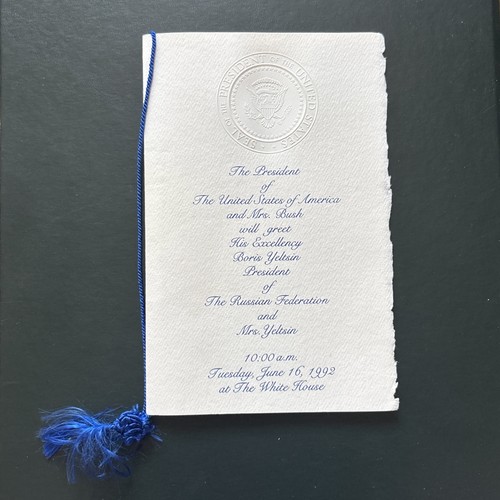 SEAL OF THE PRESIDENT OF THE UNITED STATES
The President
of
The United States of America
and Mrs. Bush
will greet
His Excellency
Boris Yeltsin
President
of
The Russian Federation
and
Mrs. Yeltsin
10:00 a.m.
Tuesday, June 16, 1992
at The White House